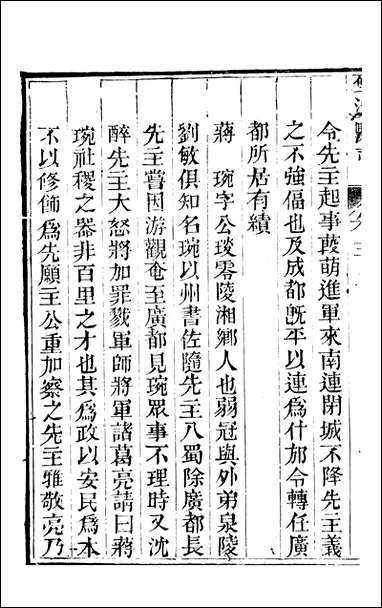 令先主起事葭萌進軍來南連閉城不降先主義
之不強偪也及成都既平以連為什邡令轉任廣
都所居有績
蔣　琬字公琰零陵湘鄉人也弱冠與外弟泉陵
劉敏俱知名琬以州書佐隨先主入蜀除廣都長
先主嘗因游觀奄至廣都見琬眾事不理時又沈
醉先主大怒將加罪戮軍師將軍諸葛亮請曰蔣
琬社稷之器非百里之才也其為政以安民為本
不以修飾為先願主公重加察之先主雅敬亮乃